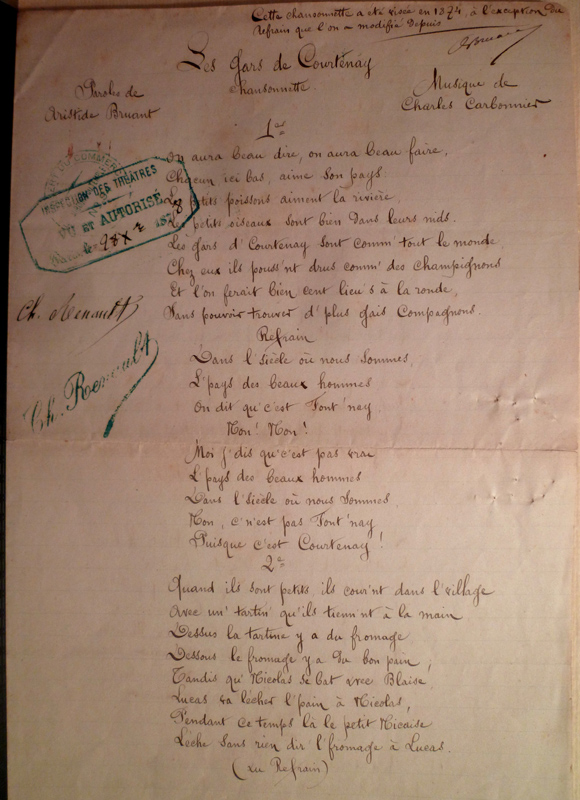 Cette chansonnette a été visée en 1874, à l'exception du
refrain que l'on a modifié depuis
ABruant
Les Gars de Courtenay
Chansonnette.
Paroles de
Aristide Bruant
Musique de
Charles Carbonnier
1er
On aura beau dire, on aura beau faire,
Chacun ici bas, aime son pays
Les petits poissons aiment la rivière,
Les petits oiseaux sont bien dans leurs nids.
Les gars d'Courtenay sont comm' tout le monde
Chez eux ils pouss'nt drus comm' des champignons
Et l'on ferait bien cent lieu's à la ronde,
Sans pouvoir trouver d'plus gais Compagnons.
INSPECTION DES THEATRES
VU ET AUTORISÉ
Ch. Renault
Ch. Renault
Refrain
Dans l'siècle où nous sommes,
L'pays des beaux hommes
On dit qu'c'est Font'nay
Non! Non!
Moi j'dis qu'c'est pas vrai
L'pays des beaux hommes
Dans l'siècle où nous sommes
Non, c'n'est pas Font'nay
Puisque c'est Courtenay!
2e
Quand ils sont petits, ils cour'nt dans l'village
Avec un' tartin' qu'ils tienn'nt à la main
Dessus la tartine y a du fromage
Dessous le fromage y a du bon pain,
Tandis qu'Nicolas se bat avec Blaise,
Lucas va lécher l'pain à Nicolas,
Pendant ce temps là le petit Nicaise
Lèche sans rien dir' l'fromage à Lucas.
(au Refrain)